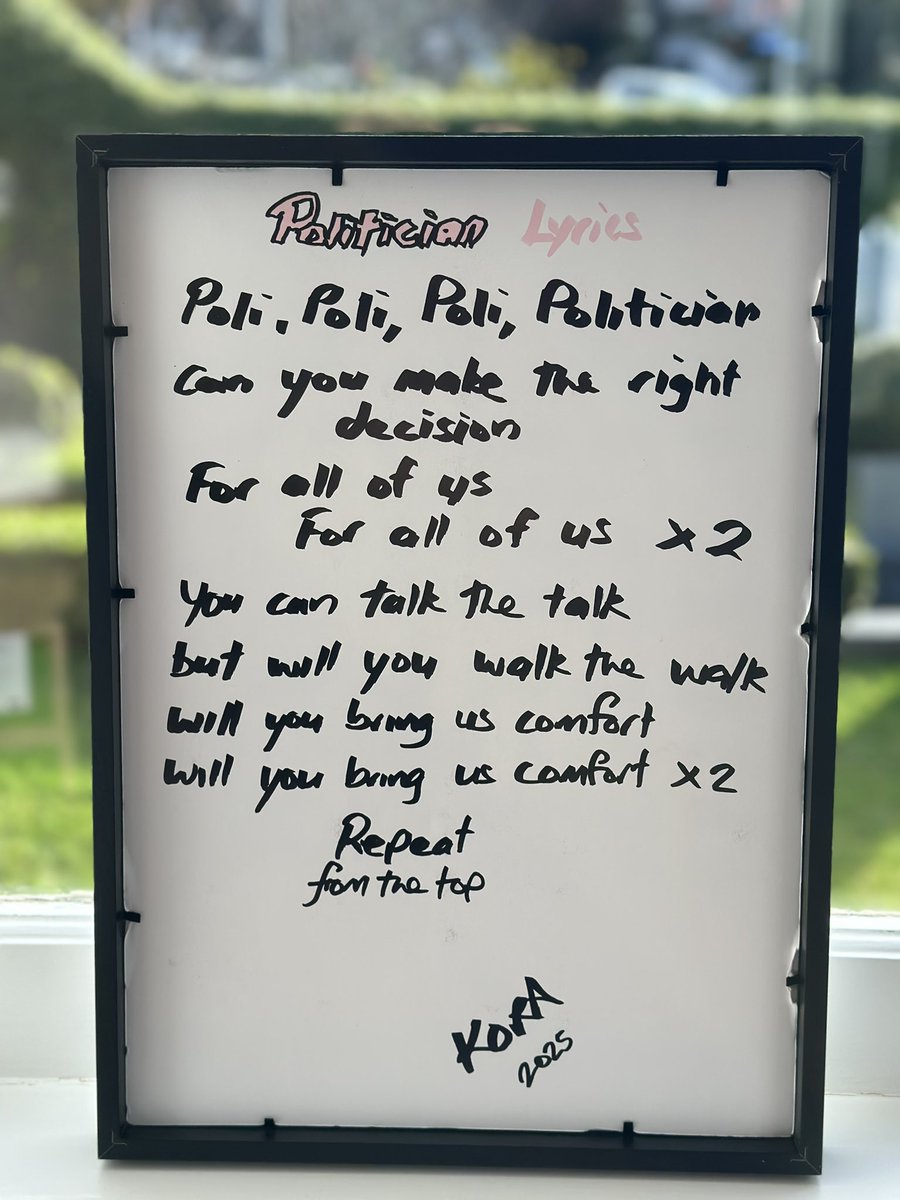 Politician Lyrics
Poli, Poli, Poli, Politician
can you make the right
decision
For all of us
For all of us x2
You can talk the talk
but will you walk the walk
will you bring us comfort
will you bring us comfort x2
Repeat
from the top
KORA
2025